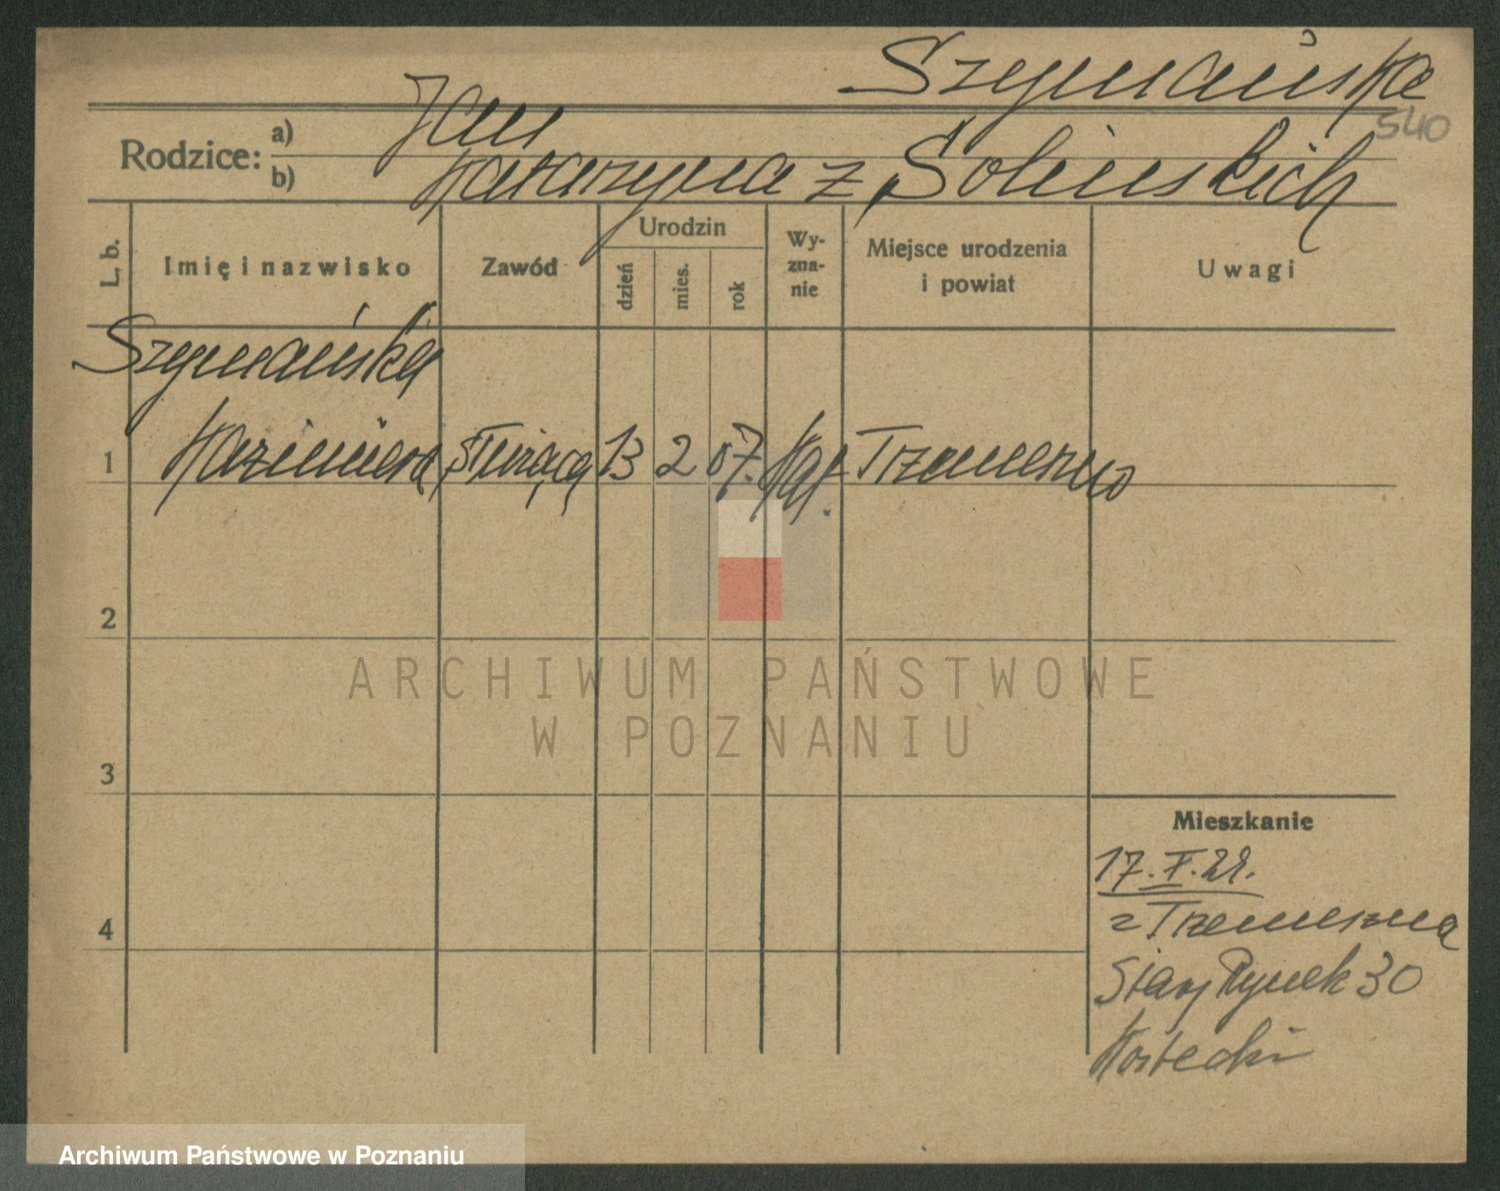 Szymańska
540
Rodzice:
a) Jan
b) Katarzyna z Solińskich
L. b.
Imię i nazwisko
Zawód
Urodzin
dzień
mies.
rok
Wy-
zna-
nie
Miejsce urodzenia
i powiat
Uwagi
Szymańska
1 Kazimiera służąca 13 2 07. kat. Trzemeszno
2
3
4
Mieszkanie
17. X. 29.
z Trzemeszna
Stary Rynek 30
ARCHIWUM PAŃSTWOWE
W POZNANIU
Archiwum Państwowe w Poznaniu